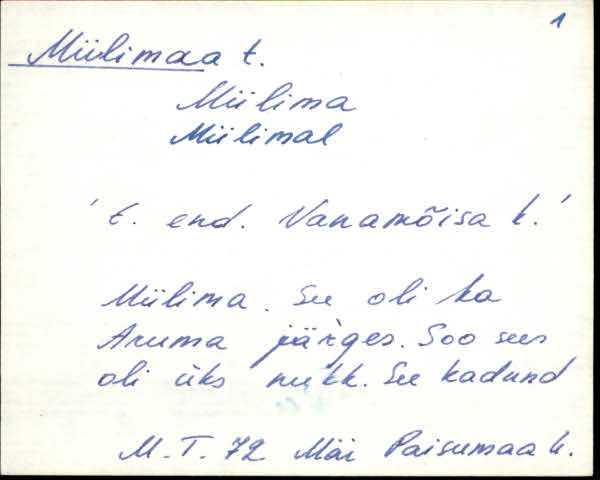 1
Miilimaa t.
Miilima
Miilimal
't. end. Vanamõisa k.'
Miilima. See oli ka
Aruma järges. Soo sees
oli üks nukk. See kadund
M.T. 72 Mäi Paisumaa k.